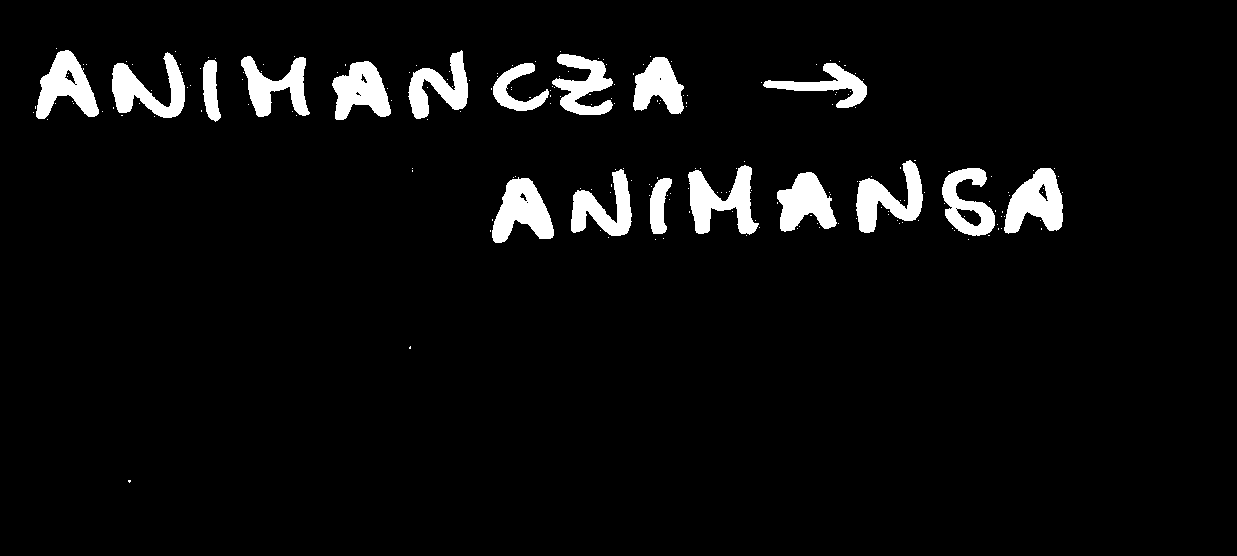 ANIMANCZA →
ANIMANSA